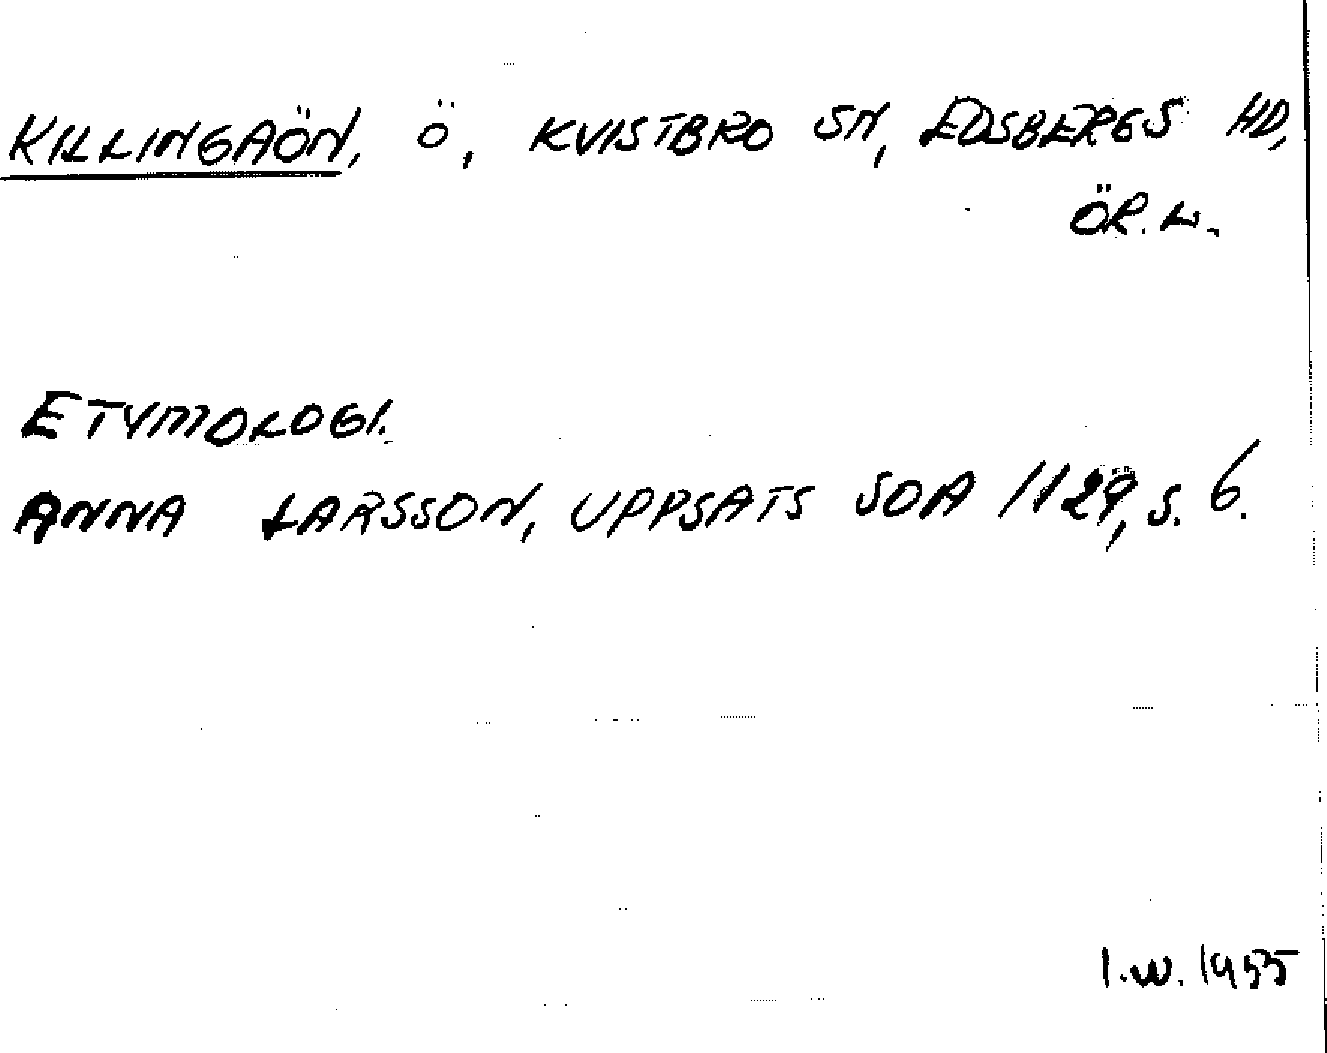 KILLINGAÖN, Ö, KVISTBRO SN, EDSBERGS HD,
ÖR. L.
ETYMOLOGI.
ANNA LARSSON, UPPSATS SOA 1129, S. 6.
I.W. 1955